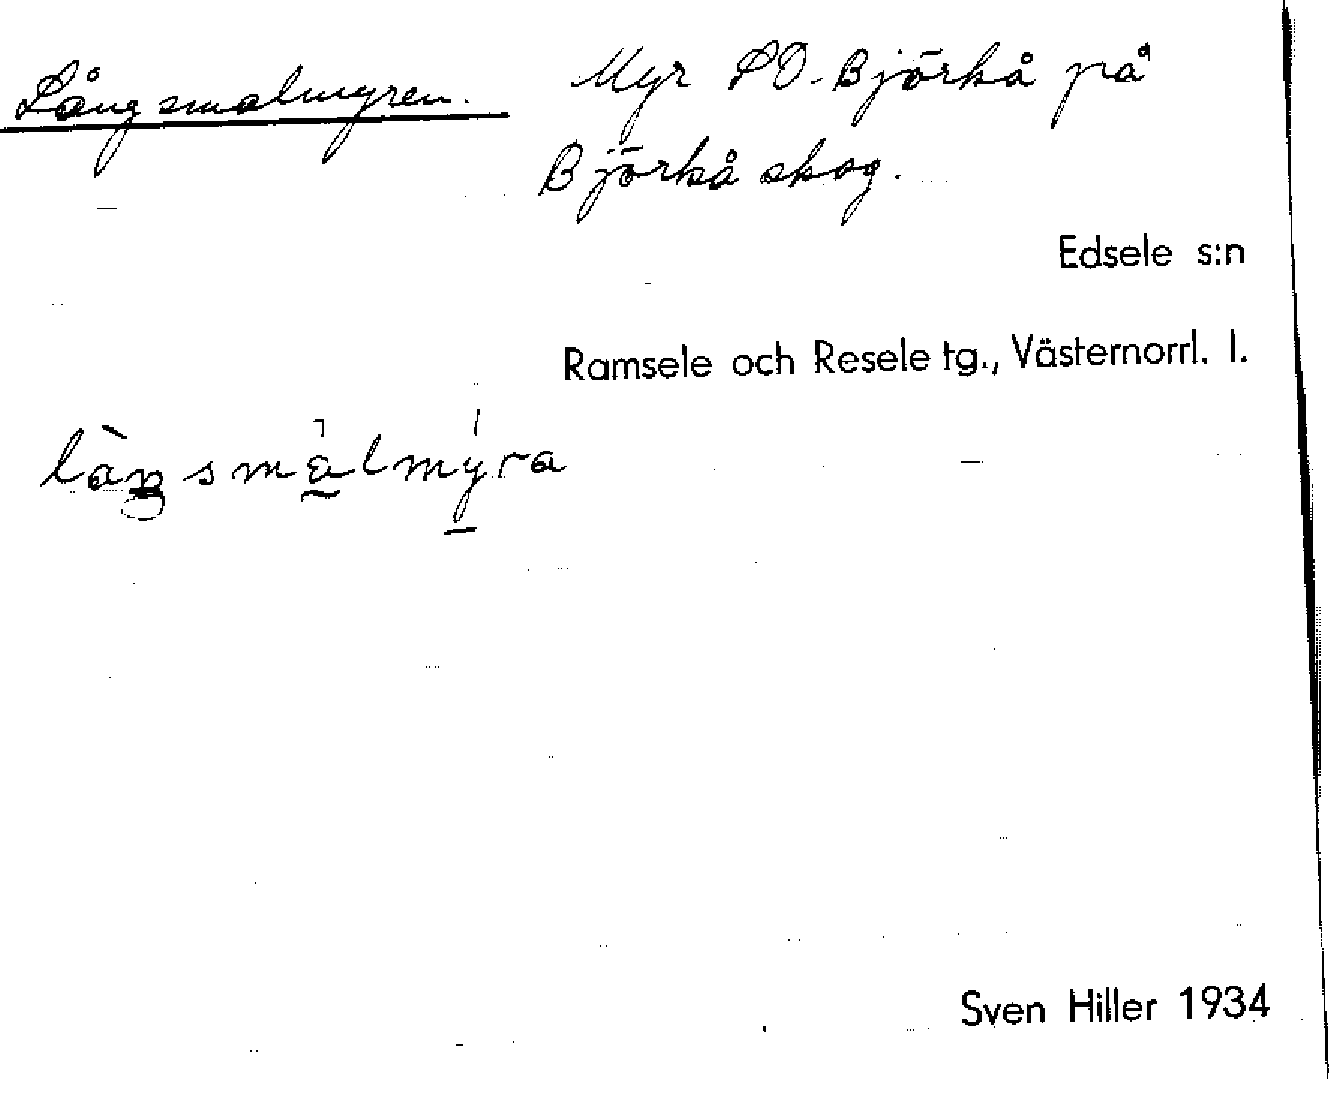 Långsmalmyren. Myr SO. Björkå på
Björkå skog.
Edsele s:n
Ramsele och Resele tg., Västernorrl. l.
làŋsmàlmýra
Sven Hiller 1934